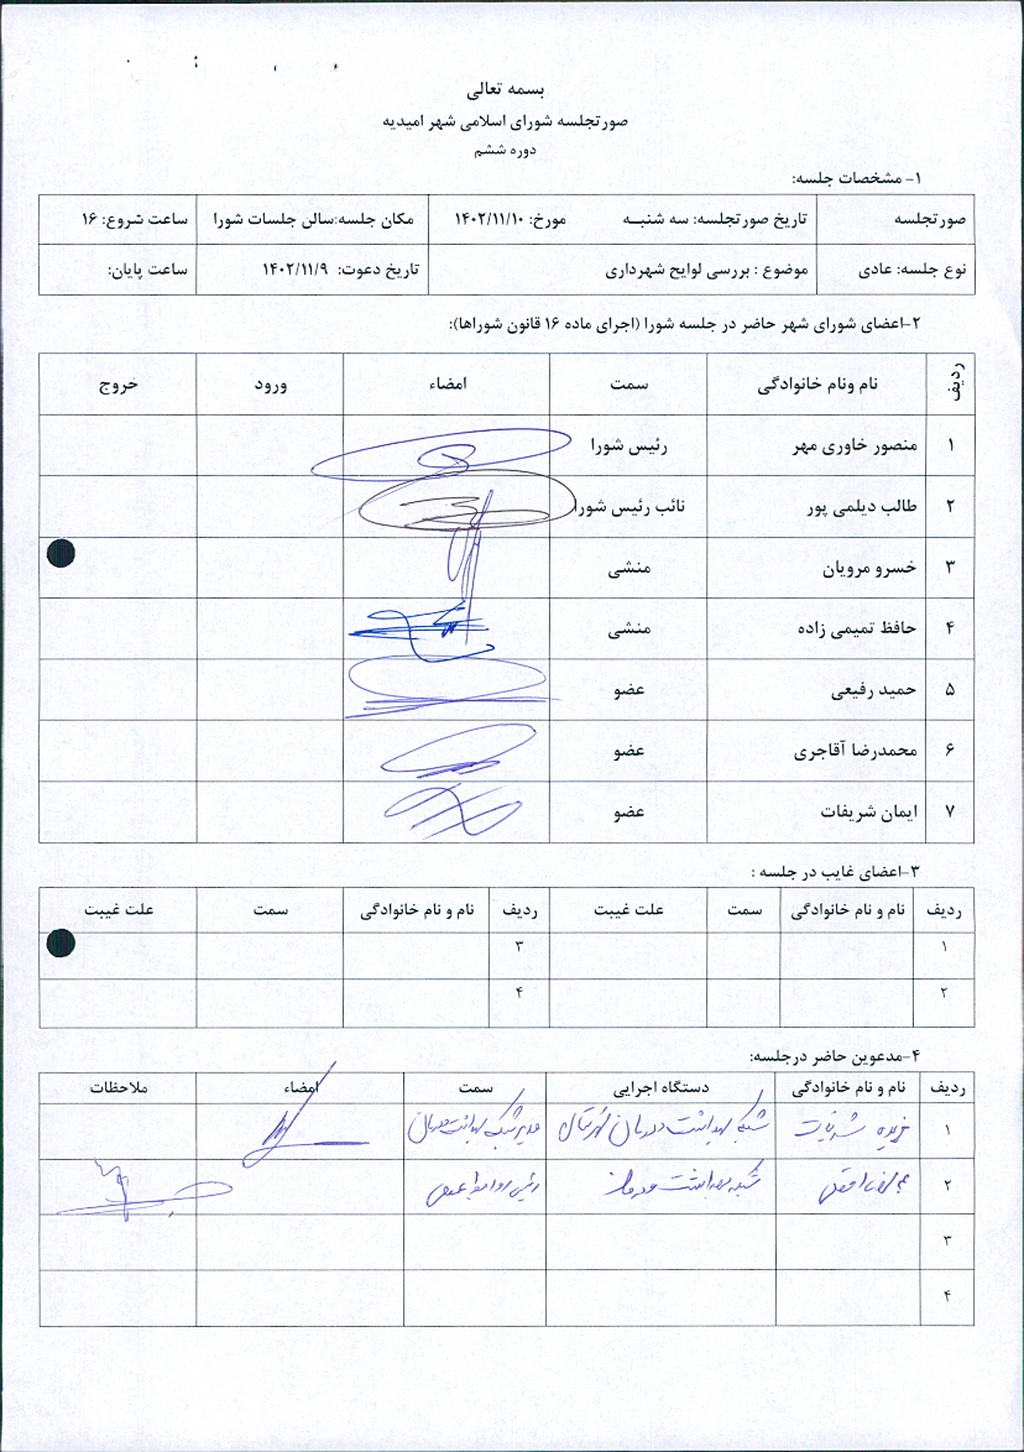 بسمه تعالی
صورتجلسه شورای اسلامی شهر امیدیه
دوره ششم
۱- مشخصات جلسه:
صورتجلسه تاریخ صورتجلسه: سه شنبه مورخ: ۱۴۰۲/۱۱/۱۰ مکان جلسه:سالن جلسات شورا ساعت شروع: ۱۶
نوع جلسه: عادی موضوع : بررسی لوایح شهرداری تاریخ دعوت: ۱۴۰۲/۱۱/۹ ساعت پایان:
۲-اعضای شورای شهر حاضر در جلسه شورا (اجرای ماده ۱۶ قانون شوراها):
ردیف نام ونام خانوادگی سمت امضاء ورود خروج
۱ منصور خاوری مهر رئیس شورا
۲ طالب دیلمی پور نائب رئیس شورا
۳ خسرو مرویان منشی
۴ حافظ تمیمی زاده منشی
۵ حمید رفیعی عضو
۶ محمدرضا آقاجری عضو
۷ ایمان شریفات عضو
۳-اعضای غایب در جلسه :
ردیف نام و نام خانوادگی سمت علت غیبت ردیف نام و نام خانوادگی سمت علت غیبت
۱ ۳
۲ ۴
۴-مدعوین حاضر درجلسه:
ردیف نام و نام خانوادگی دستگاه اجرایی سمت امضاء ملاحظات
۱ شبکه بهداشت و درمان مدیر شبکه بهداشت و درمان
۲ شبکه بهداشت و درمان رئیس روابط عمومی
۳
۴